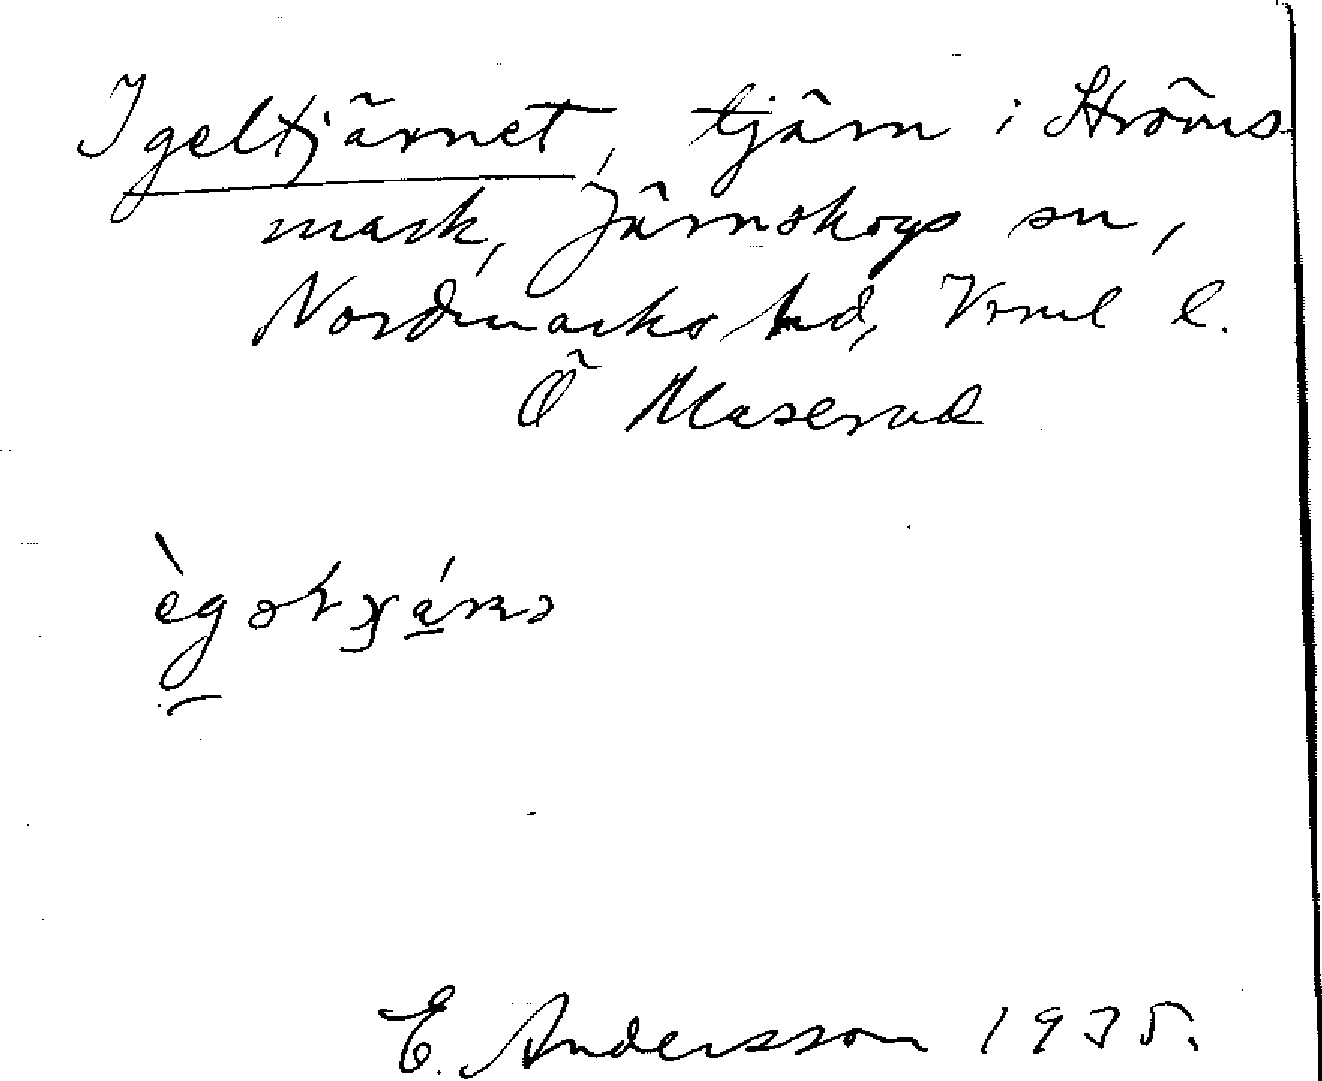 Igeltjärnet, tjärn i Ströms-
mark, Järnskogs sn,
Nordmarks hd, Vrml l.
Ö Maserud
E. Andersson 1935.